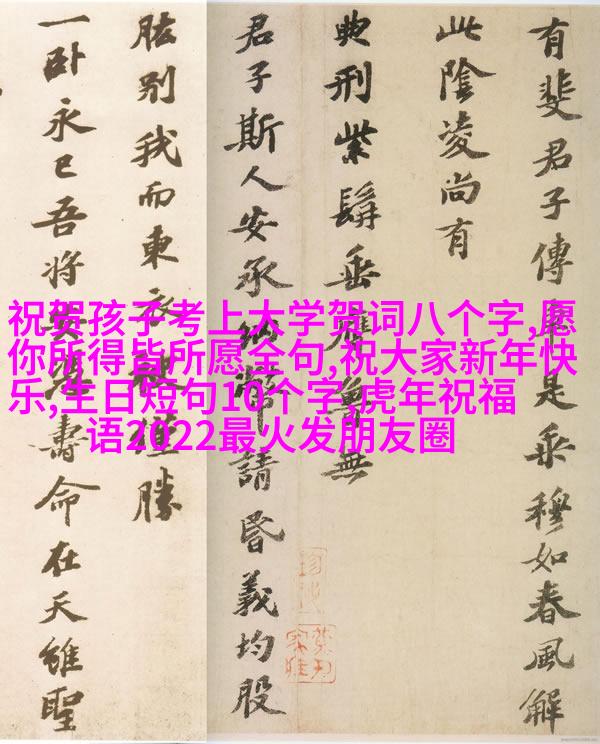 祝贺孩子考上大学贺词八个字,愿
你所得皆所愿全句,祝大家新年快
乐,生日短句10个字,虎年祝福
语2022最火发朋友圈
有斐君子傳車是乘穆如春風解
此陰凌尚有
典刑紫髯垂膺魯無
君子斯人安承納幣請昏義均股
肱別我而東衣袂僅勝
一卧永已吾將安憑壽命在天雖聖